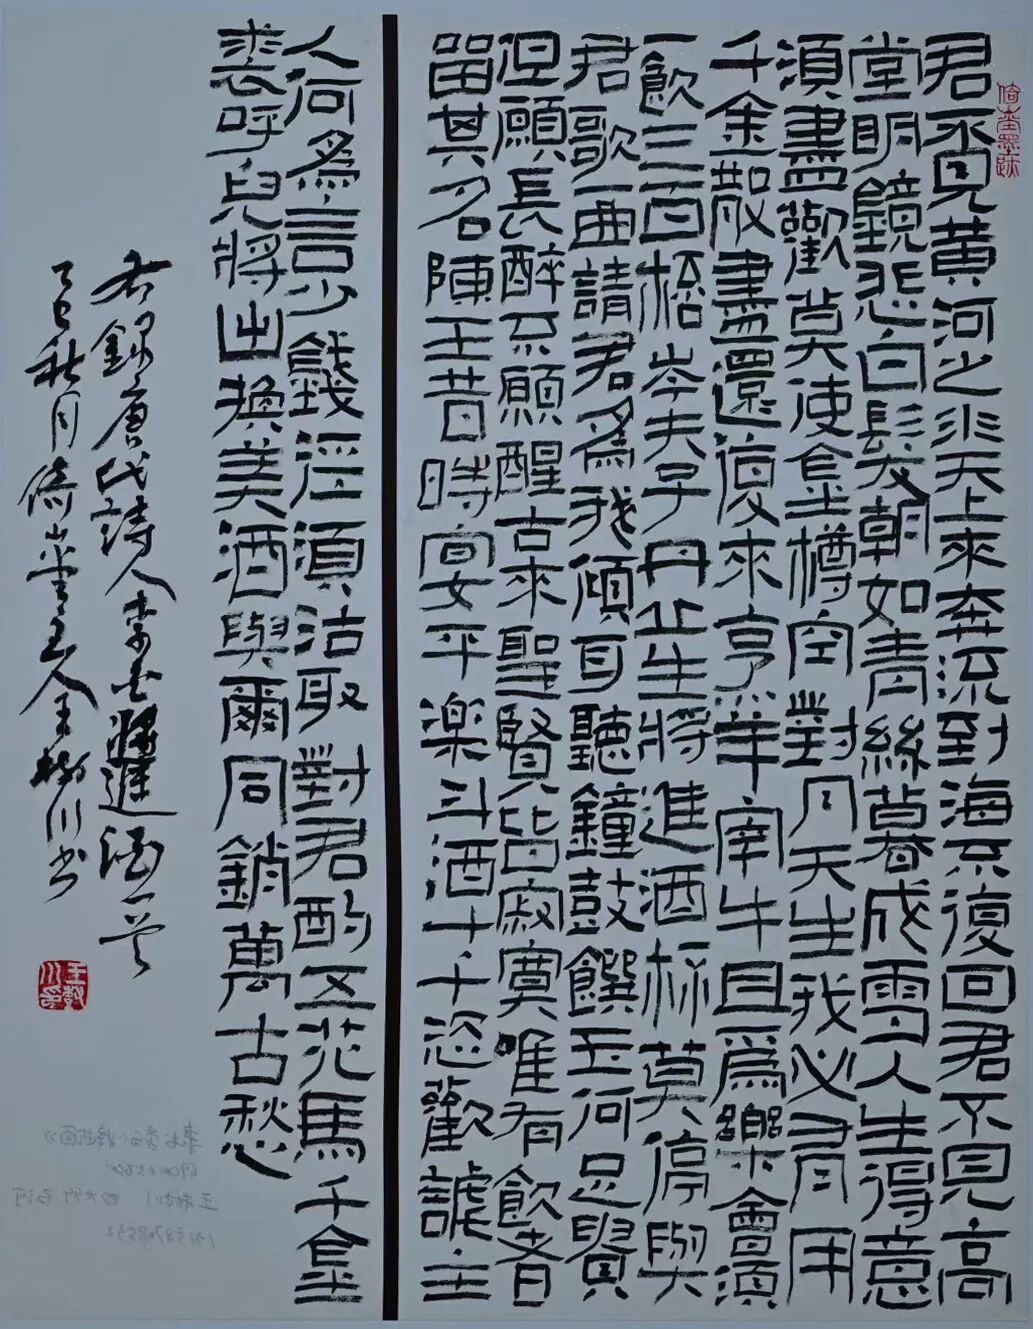 君不見黃河之水天上來奔流到海不復回君不見高
堂明鏡悲白髮朝如青絲暮成雪人生得意
須盡歡莫使金樽空對月天生我必有用
千金散盡還復來烹羊宰牛且爲樂會須
一飲三百桮岑夫子丹丘生將進酒桮莫停與
君歌一曲請君爲我傾耳聽鐘鼓饌玉何足貴
但願長醉不願醒古來聖賢皆寂寞唯有飲者
留其名陳王昔時宴平楽斗酒十千恣歡謔主
人何爲言少錢徑須沽取對君酌五花馬千金
裘呼兒將出換美酒與爾同銷萬古愁
右錄唐代詩人李白將進酒一首
乙巳秋月倚山堂主人王樹川書
王樹川印